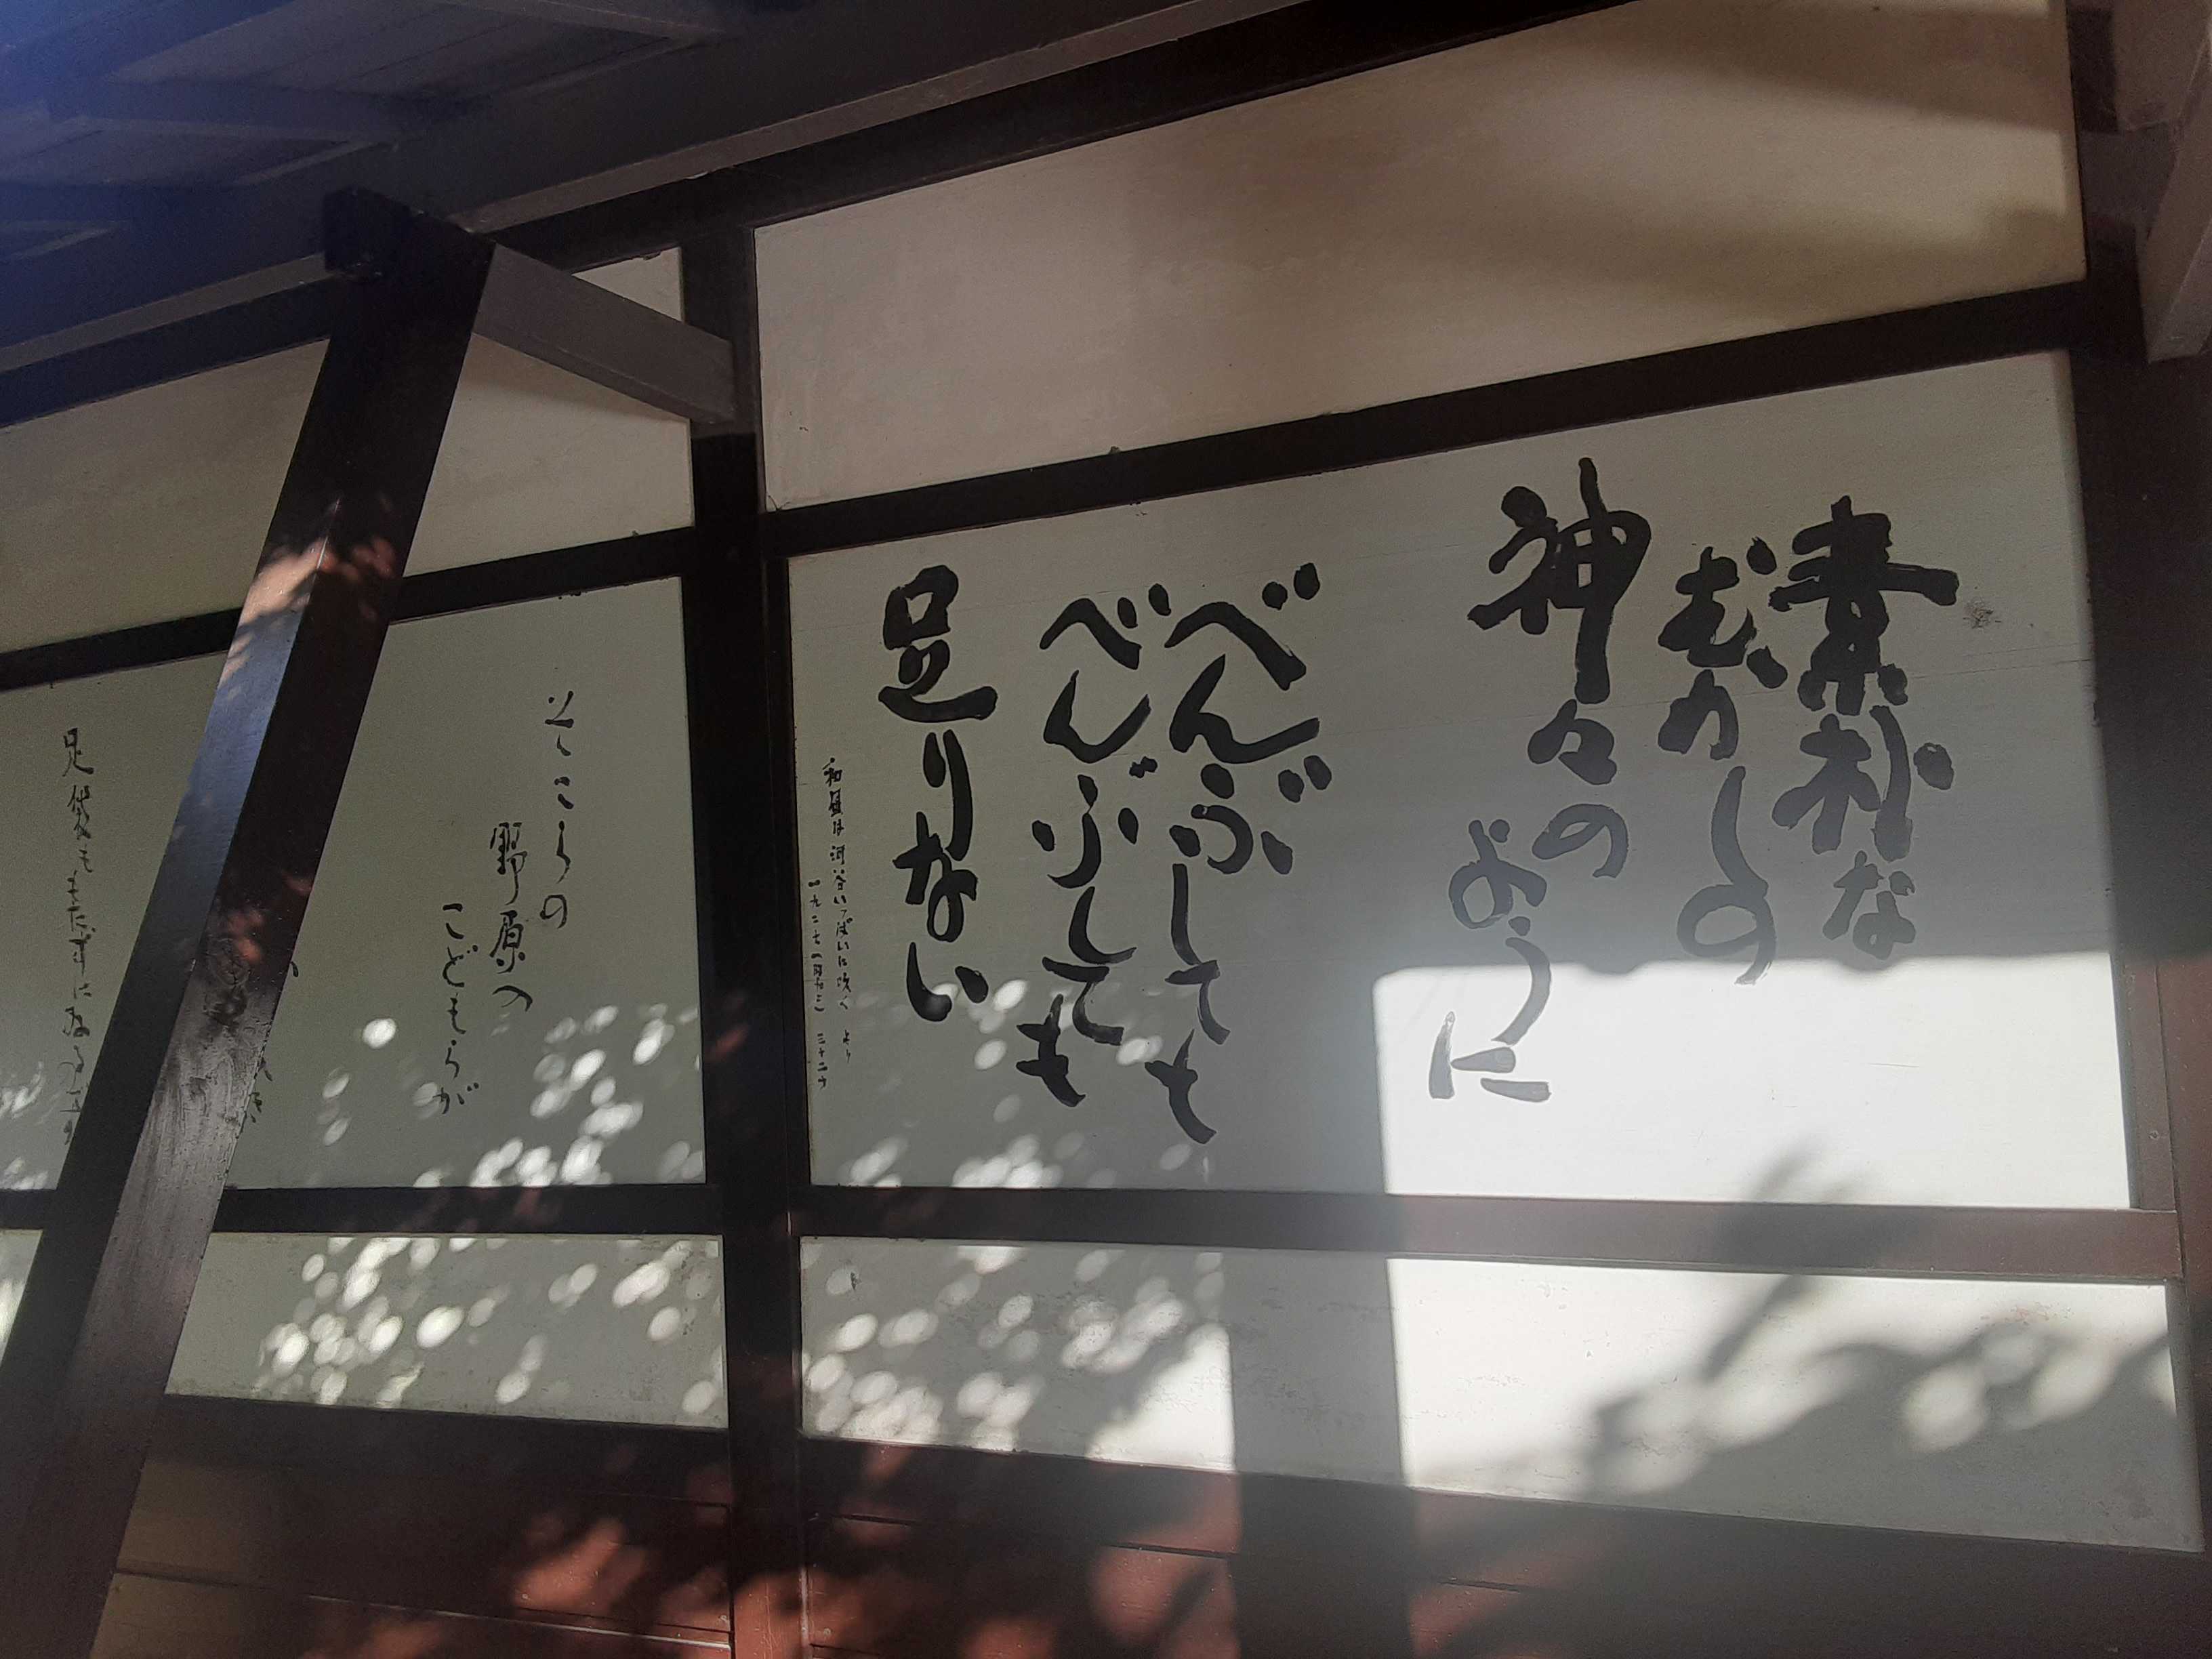 素朴な
むかしの
神々の
ように
べんぶしても
べんぶしても
足りない
和風は河谷いっぱいに吹く より
一九二七(昭和二) 三十二才
そこらの
野原の
こどもらが
足袋ももたずに